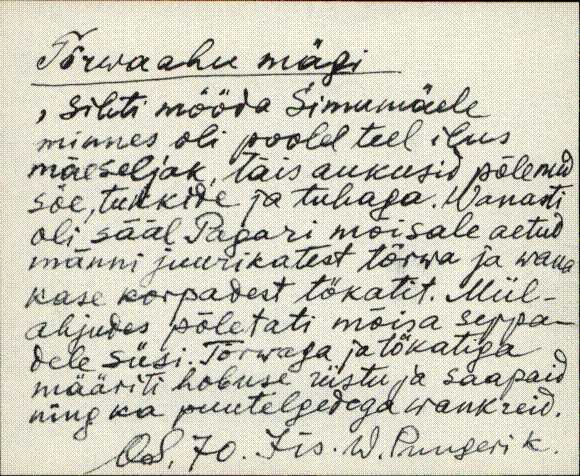 Tõrwaahu mägi
, sihti mööda Simumäele
minnes oli poolel teel ilus
mäeseljak, täis aukusid põlenud
söe, tukkide ja tuhaga. Wanasti
oli sääl Pagari mõisale aetud
männi juurikatest tõrwa ja wana
kase korpadest tökatit. Miil-
ahjudes põletati mõisa seppa-
dele süsi. Tõrwaga ja tökatiga
määriti hobuse riistu ja saapaid
ning ka puutelgedega wankreid.
70. Iis. W. Pungerik.